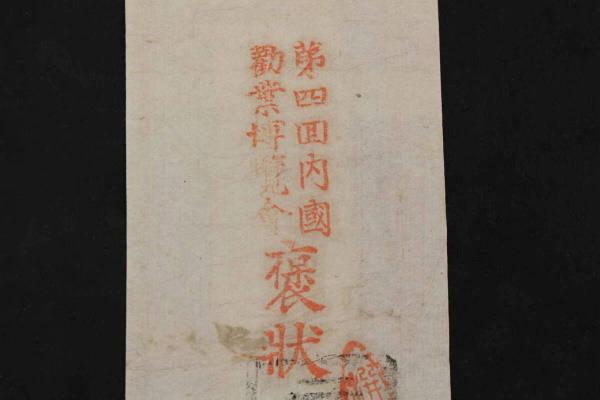 第四回内國
勸業博覽會
褒狀